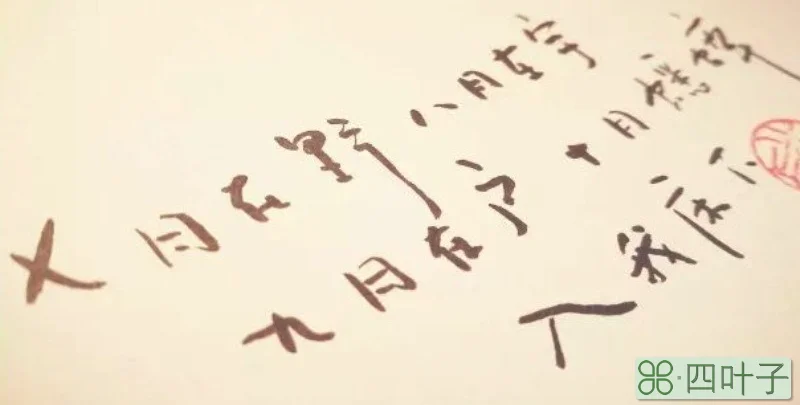 七月在野 八月在宇
九月在户 十月蟋蟀
入我床下
四叶子